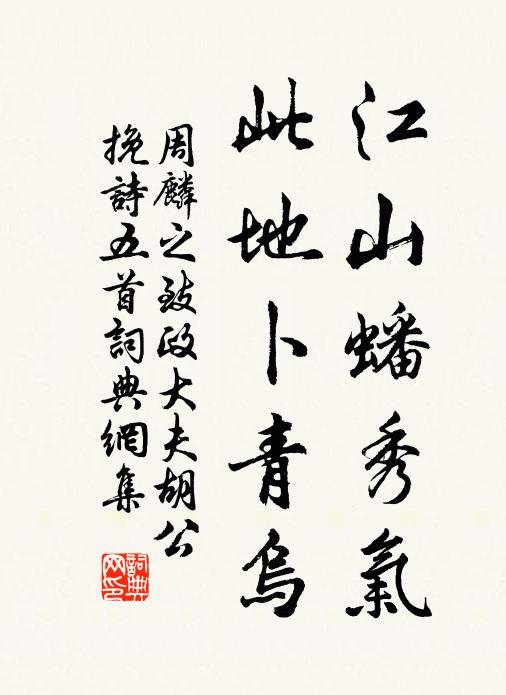 江山蟠秀氣
此地卜青烏
周麟之致政大夫胡公
挽詩五首詞典網集
詞典
网印